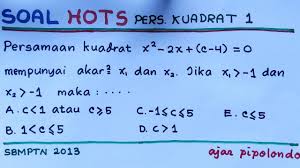 SOAL HOTS PERS. KUADRAT 1
Persamaan kuadrat x²-2x+(c-4)=0
mempunyai akar² x₁ dan x₂. Jika x₁>-1 dan
x₂>-1 maka : ....
A. c<1 atau c≥5 C. -1≤c≤5 E. c≤5
B. 1<c≤5 D. c>1
SBMPTN 2013 ajar pipolondo